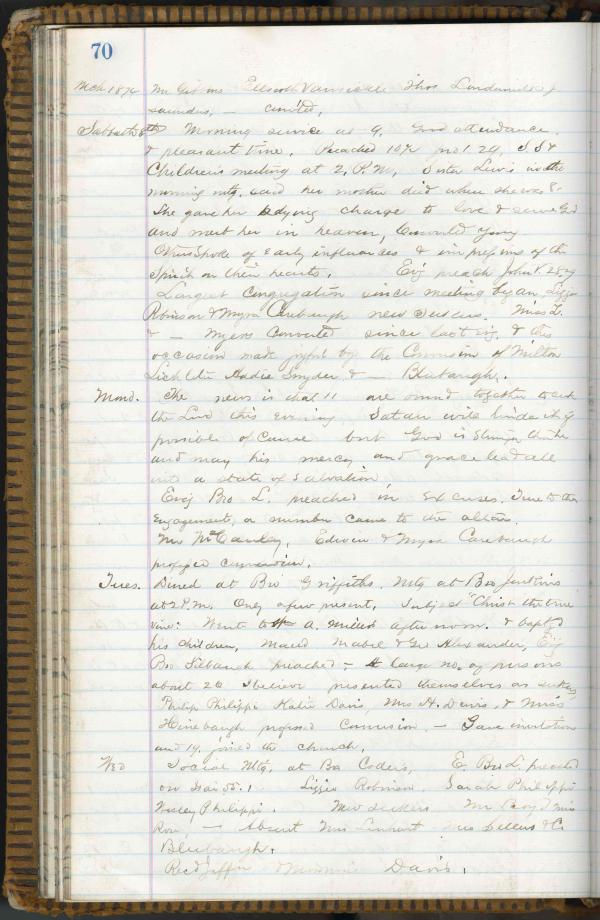 70
Mch 1876 Mr Gibons Ellsworth Vansickle Thos Lindamude &
Saunders, — united,
Sabbath 5th Morning service at 9. Good attendance
& pleasant time. Preached 107 no 1. 24. S S &
Childrens meeting at 2. P.M. Sister Lewis in the
morning mtg. said her mother died when she was 8.
She gave her dying charge to love & serve God
and meet her in heaven, Converted young
Others spoke of early influences & impressions of the
Spirit on their hearts. Evg preach John
Largest Congregation since meeting began Lizzie
Robinson & Myra Carebaugh new Seekers. Miss L.
& — Myers Converted since last evg. & the
occasion made joyful by the Conversion of Milton
Sadie Snyder & — Blubaugh.
Mond. The news is that 11 are bound together to seek
the Lord this evening Satan will hinder if
possible of course but God is stronger than he
and may his mercy and grace lead all
into a state of salvation.
Evg Bro L. preached on Excuses. True to the
Engagement, a number came to the altar.
Mr McCauley, Edwin & Myra Carebaugh
professed conversion.
Tues. Dined at Bro Griffiths. Mtg at Bro Jenkins
at 2 P.M. Only a few present. Subject "Christ the true
vine: Went to A. Millers afternoon. & baptd
his children, Maud Mabel & Geo Alexander, Evg
Bro Silbaugh preached — A large no. of persons
about 20 I believe presented themselves as seekers
Philip Philippi Katie Davis, Mrs H. Davis, & Miss
Hinebaugh professed Conversion. — Gave invitation
and 19. joined the church.
Wed Social Mtg. at Bro Coders, E. Bro L. preached
on Isai 55.1 Lizzie Robinson. Sarah Philippi
Wesley Philippi. New seekers Mr Boyd Miss
Rose, — Absent Miss Lenhart Miss Sellers &
Blubaugh.
Recd Jeffn & Davis.